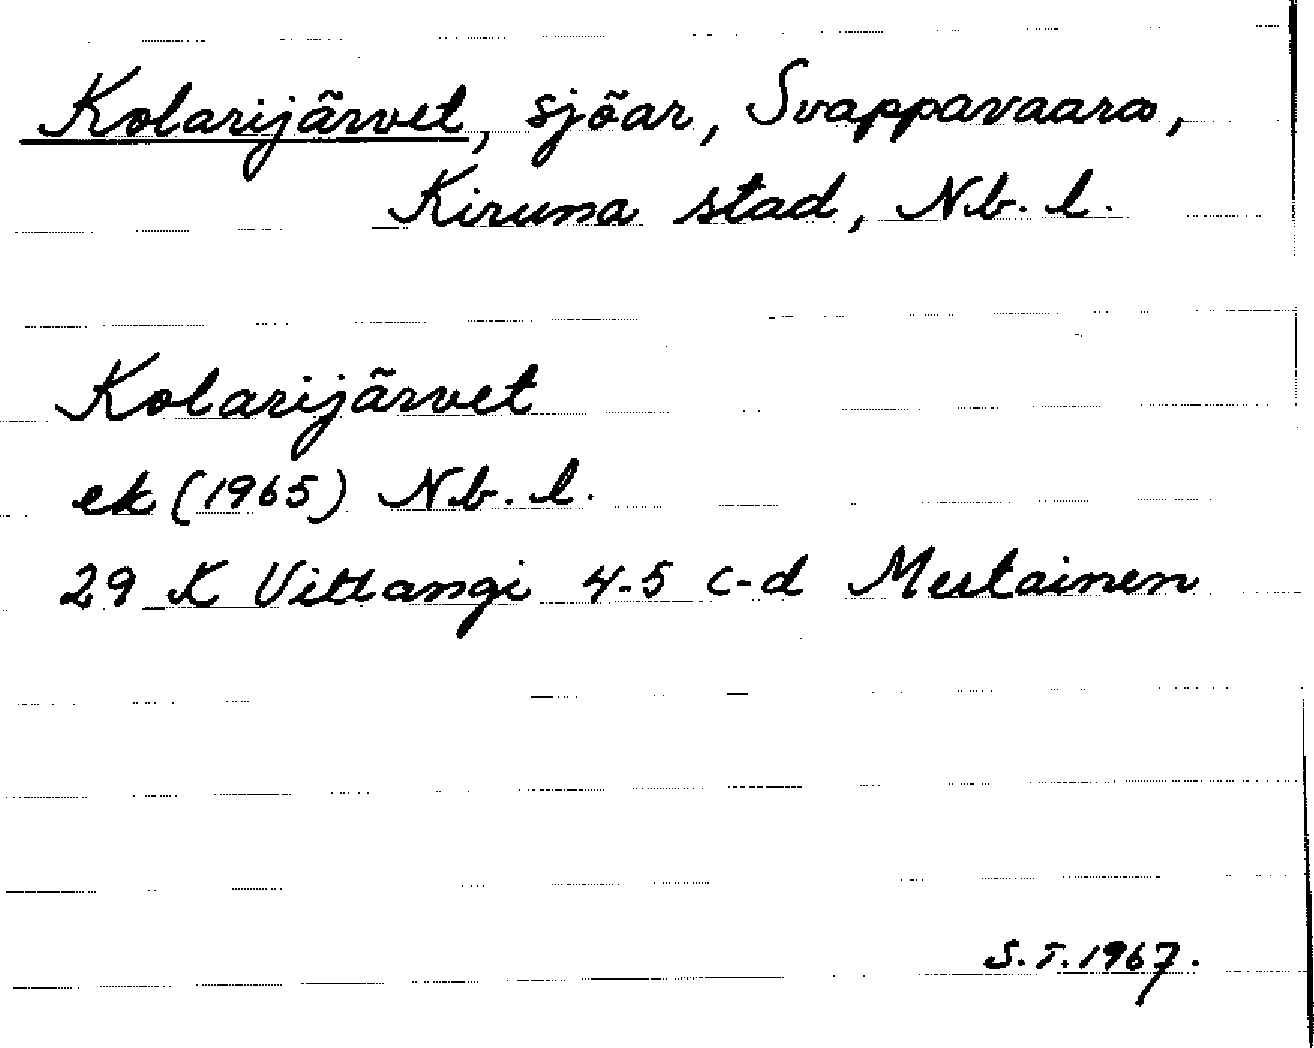 Kolarijärvet, sjöar, Svappavaara,
Kiruna stad, Nb. l.
Kolarijärvet
ek (1965) Nb. l.
29 K Vittangi 4-5 c-d Mertainen
S.T. 1967.